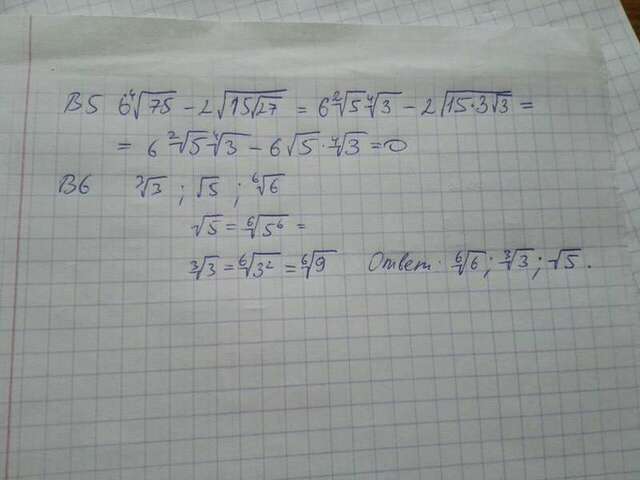 В5 6⁴√75 − 2√(15√27) = 6²√5⁴√3 − 2√(15·3√3) =
= 6²√5⁴√3 − 6√5·⁴√3 = 0
В6 ³√3 ; √5 ; ⁶√6
√5 = ⁶√5⁶ =
³√3 = ⁶√3² = ⁶√9 Ответ: ⁶√6 ; ³√3 ; √5 .